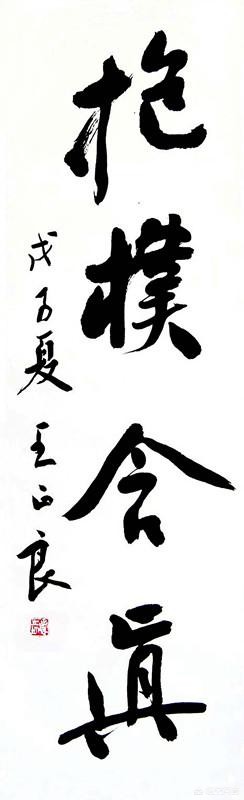 抱樸含眞
戊子夏 王正良